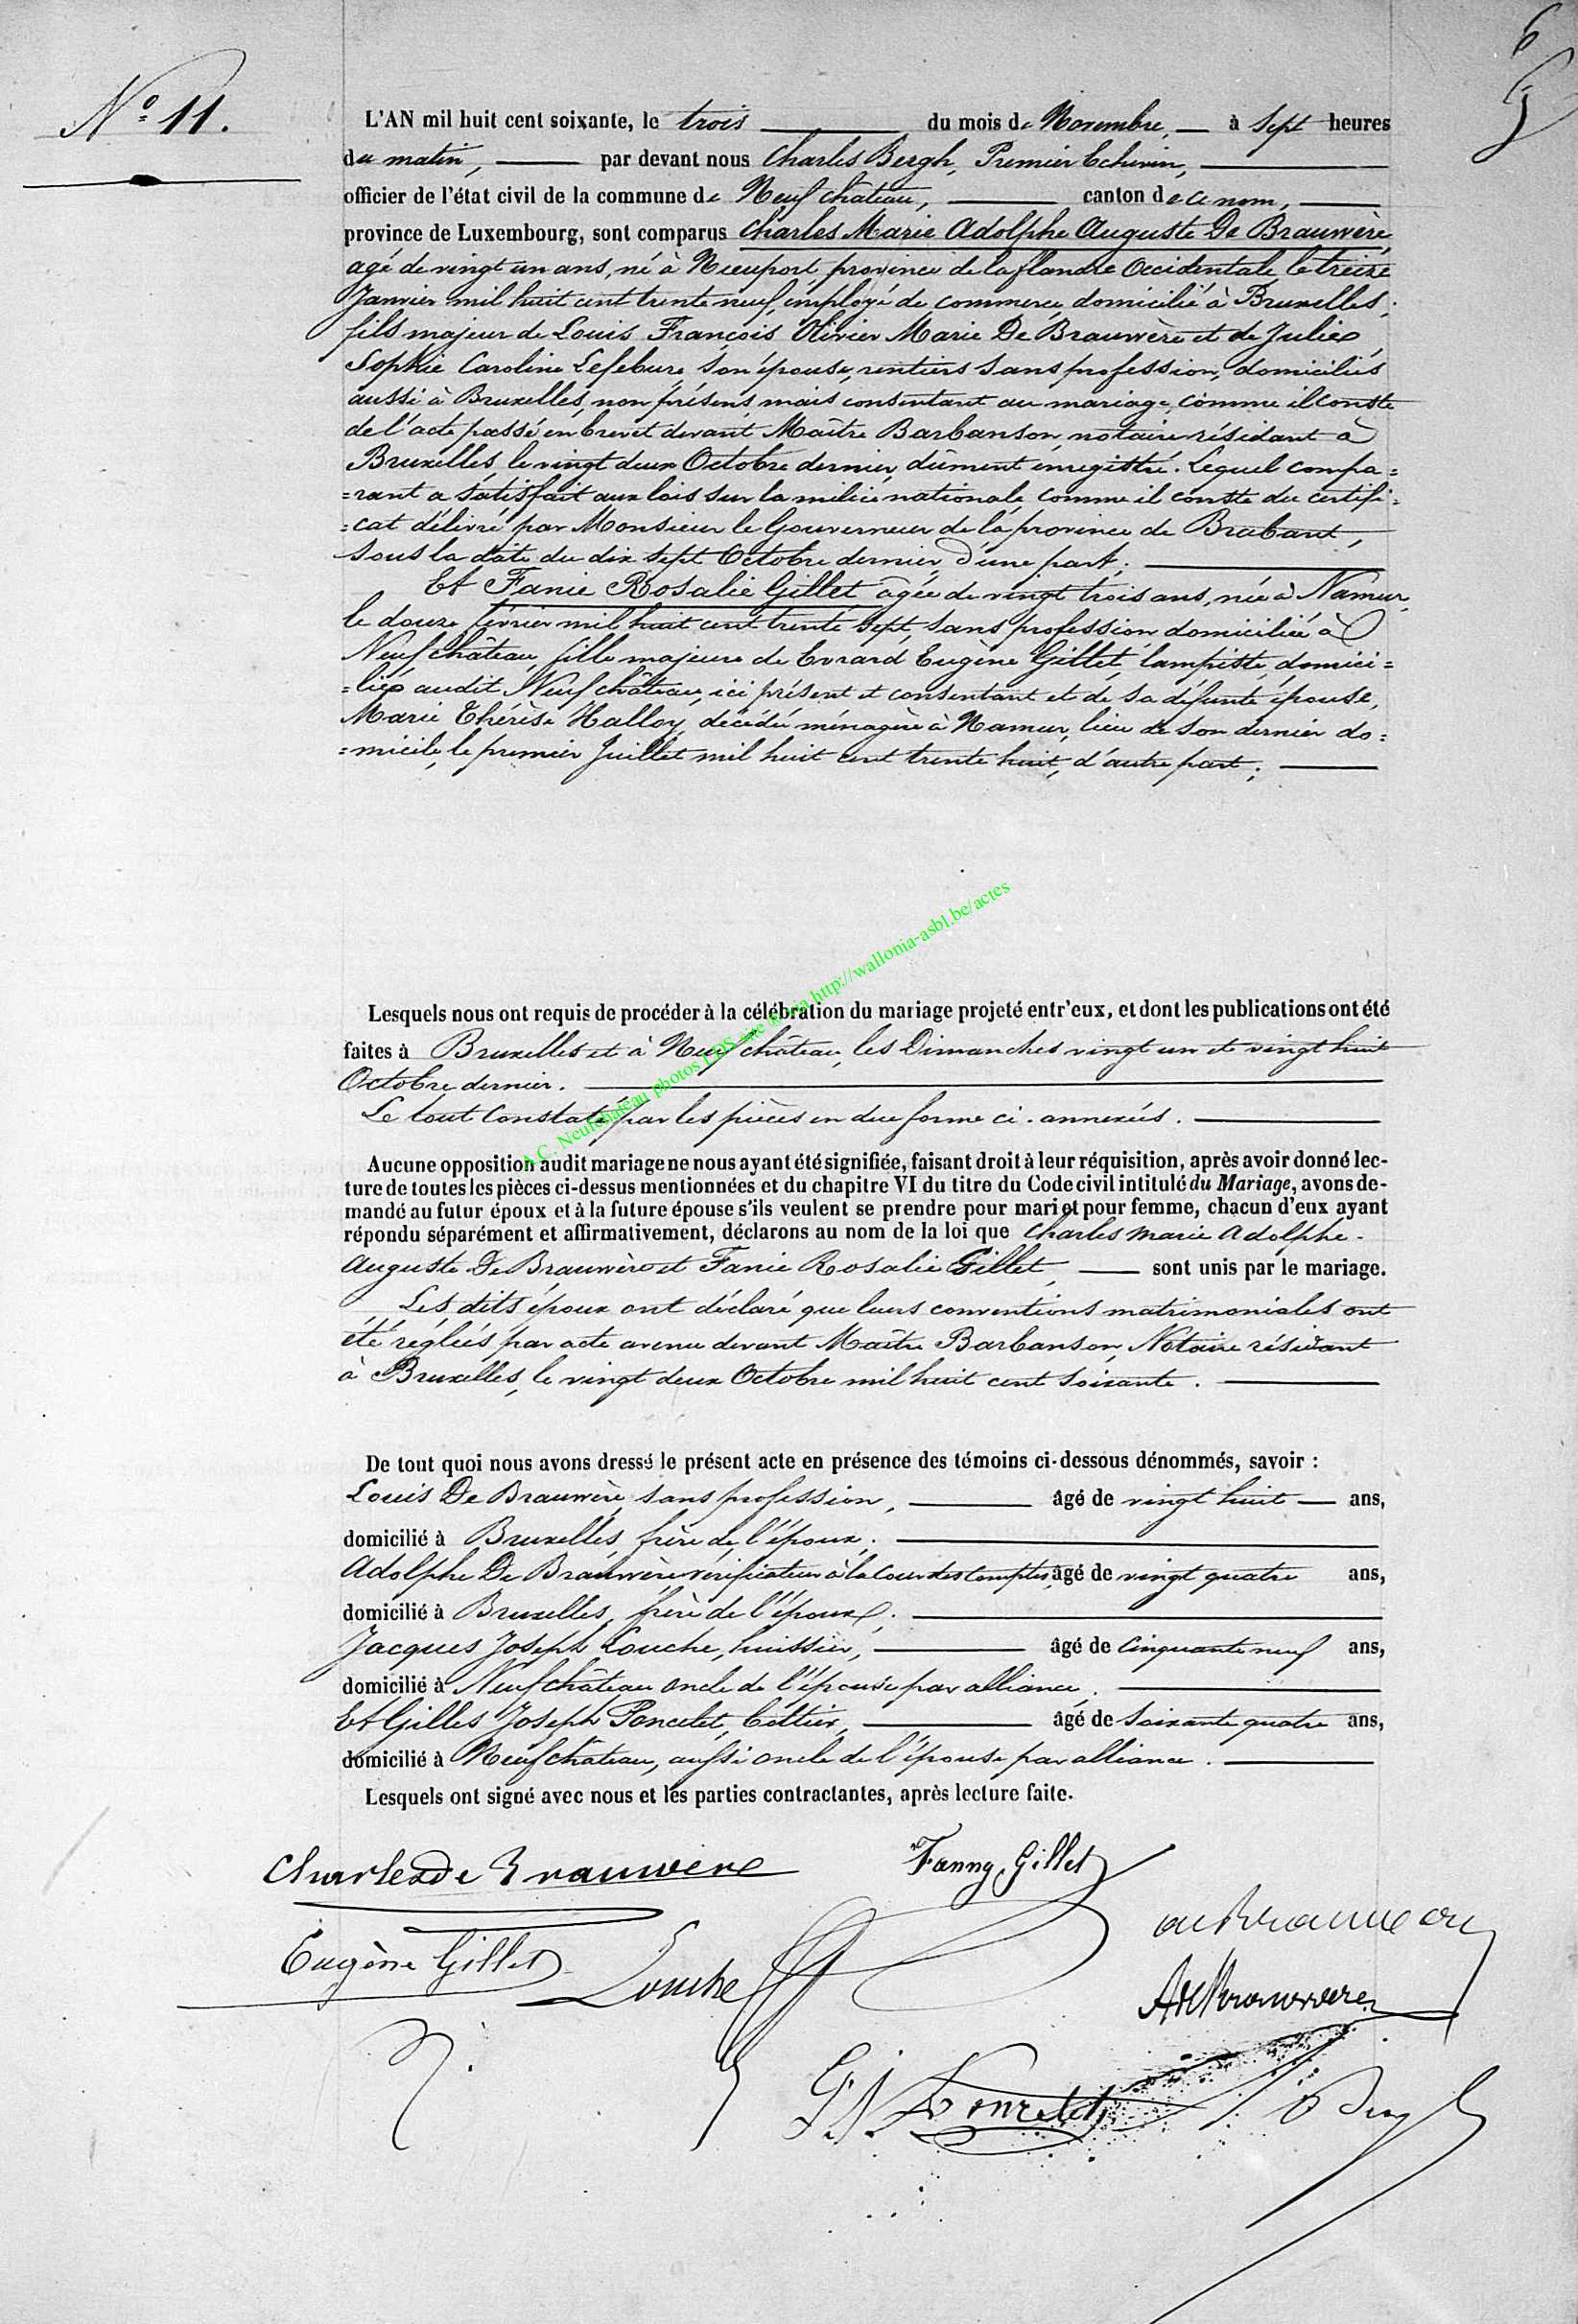 6
N° 11.
L'AN mil huit cent soixante, le trois du mois de Novembre, à Sept heures
du matin, par devant nous Charles Bergh, Premier Echevin,
officier de l'état civil de la commune de Neufchâteau, canton de ce nom,
province de Luxembourg, sont comparus Charles Marie Adolphe Auguste De Brauwère,
agé de vingt un ans, né à Nieuport, province de la flandre Occidentale, le treize
Janvier mil huit cent trente neuf, employé de commerce, domicilié à Bruxelles,
fils majeur de Louis François Olivier Marie De Brauwère et de Julie
Sophie Caroline Lefebure, son épouse, rentiers sans profession, domiciliés
aussi à Bruxelles, non présens, mais consentant au mariage, comme il conste
de l'acte passé en brevet devant Maître Barbanson, notaire résidant à
Bruxelles, le vingt deux Octobre dernier, dûment enregistré. Lequel compa=
=rant a satisfait aux lois sur la milice nationale, comme il conste du certifi=
=cat délivré par Monsieur le Gouverneur de la province de Brabant,
sous la date du dix sept Octobre dernier, d'une part;
Et Fanie Rosalie Gillet âgée de vingt trois ans, née à Namur,
le douze février mil huit cent trente sept, sans profession, domiciliée à
Neufchâteau, fille majeure de Evrard Eugène Gillet, lampiste, domici=
=lié audit Neufchâteau, ici présent et consentant et de sa défunte épouse,
Marie Thérèse Halloy, décédée ménagère à Namur, lieu de son dernier do=
=micile, le premier Juillet mil huit cent trente huit, d'autre part;
Lesquels nous ont requis de procéder à la célébration du mariage projeté entr'eux, et dont les publications ont été
faites à Bruxelles et à Neufchâteau, les Dimanches vingt un et vingt huit
Octobre dernier.
Le tout constaté par les pièces en due forme ci-annexées.
A.C. Neufchateau photos LDS site via http://wallonia-asbl.be/actes
Aucune opposition audit mariage ne nous ayant été signifiée, faisant droit à leur réquisition, après avoir donné lec-
ture de toutes les pièces ci-dessus mentionnées et du chapitre VI du titre du Code civil intitulé du Mariage, avons de-
mandé au futur époux et à la future épouse s'ils veulent se prendre pour mari et pour femme, chacun d'eux ayant
répondu séparément et affirmativement, déclarons au nom de la loi que Charles Marie Adolphe
Auguste De Brauwère et Fanie Rosalie Gillet, sont unis par le mariage.
Les dits époux ont déclaré que leurs conventions matrimoniales ont
été réglées par acte avenu devant Maître Barbanson, Notaire résidant
à Bruxelles, le vingt deux Octobre mil huit cent soixante.
De tout quoi nous avons dressé le présent acte en présence des témoins ci-dessous dénommés, savoir :
Louis De Brauwère, sans profession, âgé de vingt huit ans,
domicilié à Bruxelles, frère de l'époux.
Adolphe De Brauwère, vérificateur à la Cour des Comptes, âgé de vingt quatre ans,
domicilié à Bruxelles, frère de l'époux.
Jacques Joseph Louche, huissier, âgé de cinquante neuf ans,
domicilié à Neufchâteau oncle de l'épouse par alliance.
Et Gilles Joseph Poncelet, bottier, âgé de soixante quatre ans,
domicilié à Neufchâteau, aussi oncle de l'épouse par alliance.
Lesquels ont signé avec nous et les parties contractantes, après lecture faite.
Charles de Brauwere Fanny Gillet
Eugène Gillet Louche
A de Brauwere
G J Poncelet Bergh